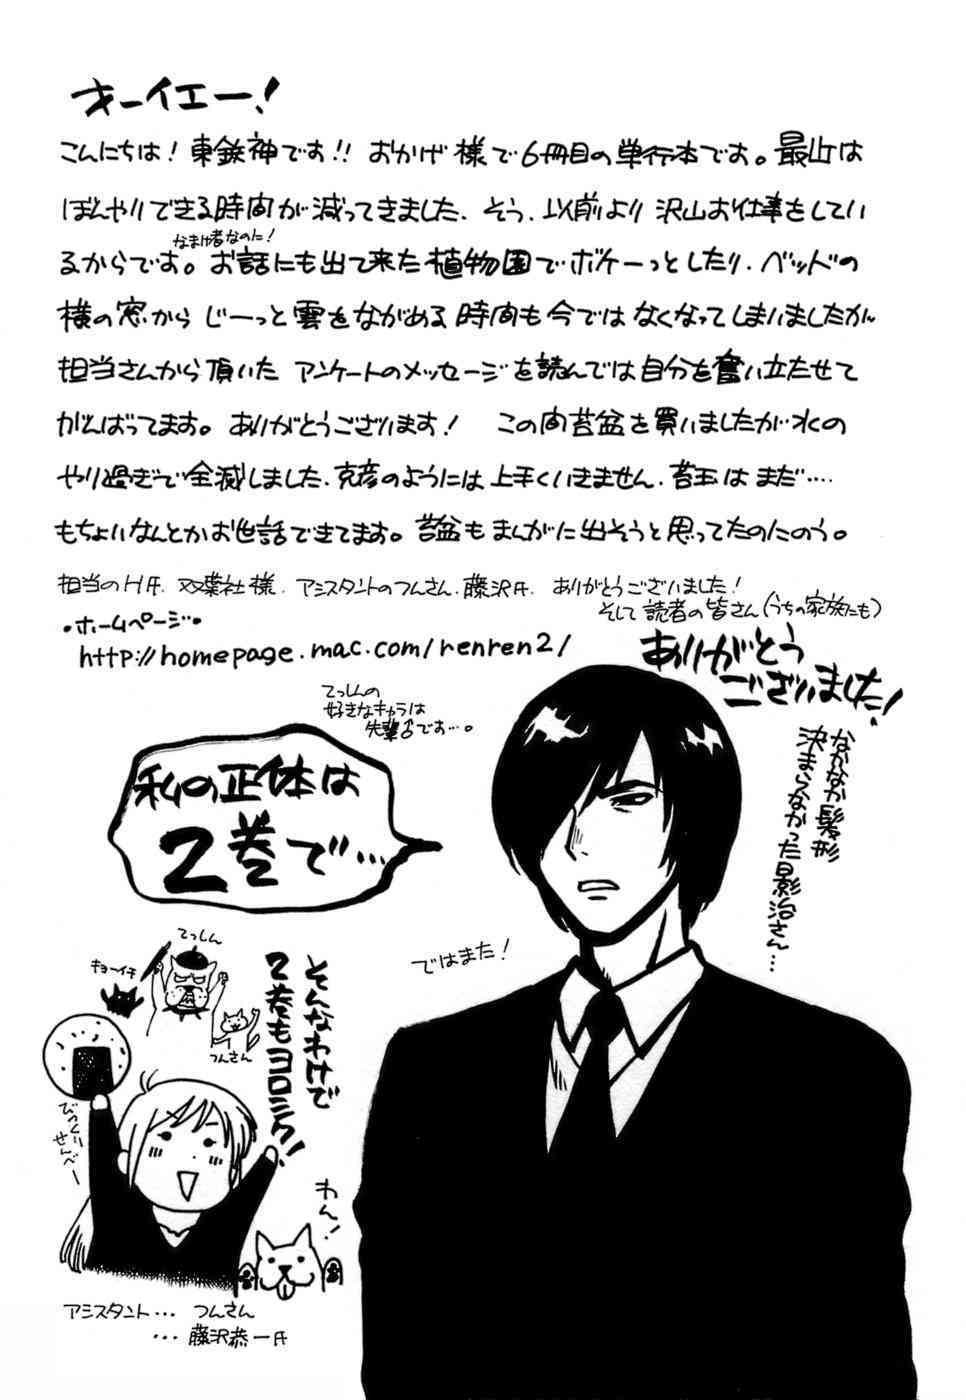 オーイエー！
こんにちは！東鉄神です!! おかげ様で6冊目の単行本です。最近は
ぼんやりできる時間が減ってきました．そう．以前より沢山お仕事をしてい
なまけ者なのに！
るからです。お話にも出て来た植物園でボケーっとしたり．ベッドの
横の窓からじーっと雲をながめる時間も今ではなくなってしまいましたが
担当さんから頂いたアンケートのメッセージを読んでは自分を奮い立たせて
がんばってます。ありがとうございます！ この間苔盆を買いましたが水の
やり過ぎで全滅しました．克彦のようには上手くいきません．苔玉はまだ‥‥
もちょいなんとかお世話できてます。苔盆もまんがに出そうと思ってたのにのう。
担当のH氏．双葉社様．アシスタントのつんさん．藤沢氏．ありがとうございました！
そして読者の皆さん（うちの家族にも）
ありがとう
ございました！
・ホームページ・
http://homepage.mac.com/renren2/
てっしんの
好きなキャラは
先輩♂です…。
私の正体は
2巻で…
なかなか髪形
決まらなかった影治さん…
ではまた！
てっしん
キョーイチ
つんさん
そんなわけで
2巻もヨロシク！
びっくり
せんべー
わん！
アシスタント… つんさん
… 藤沢恭一氏